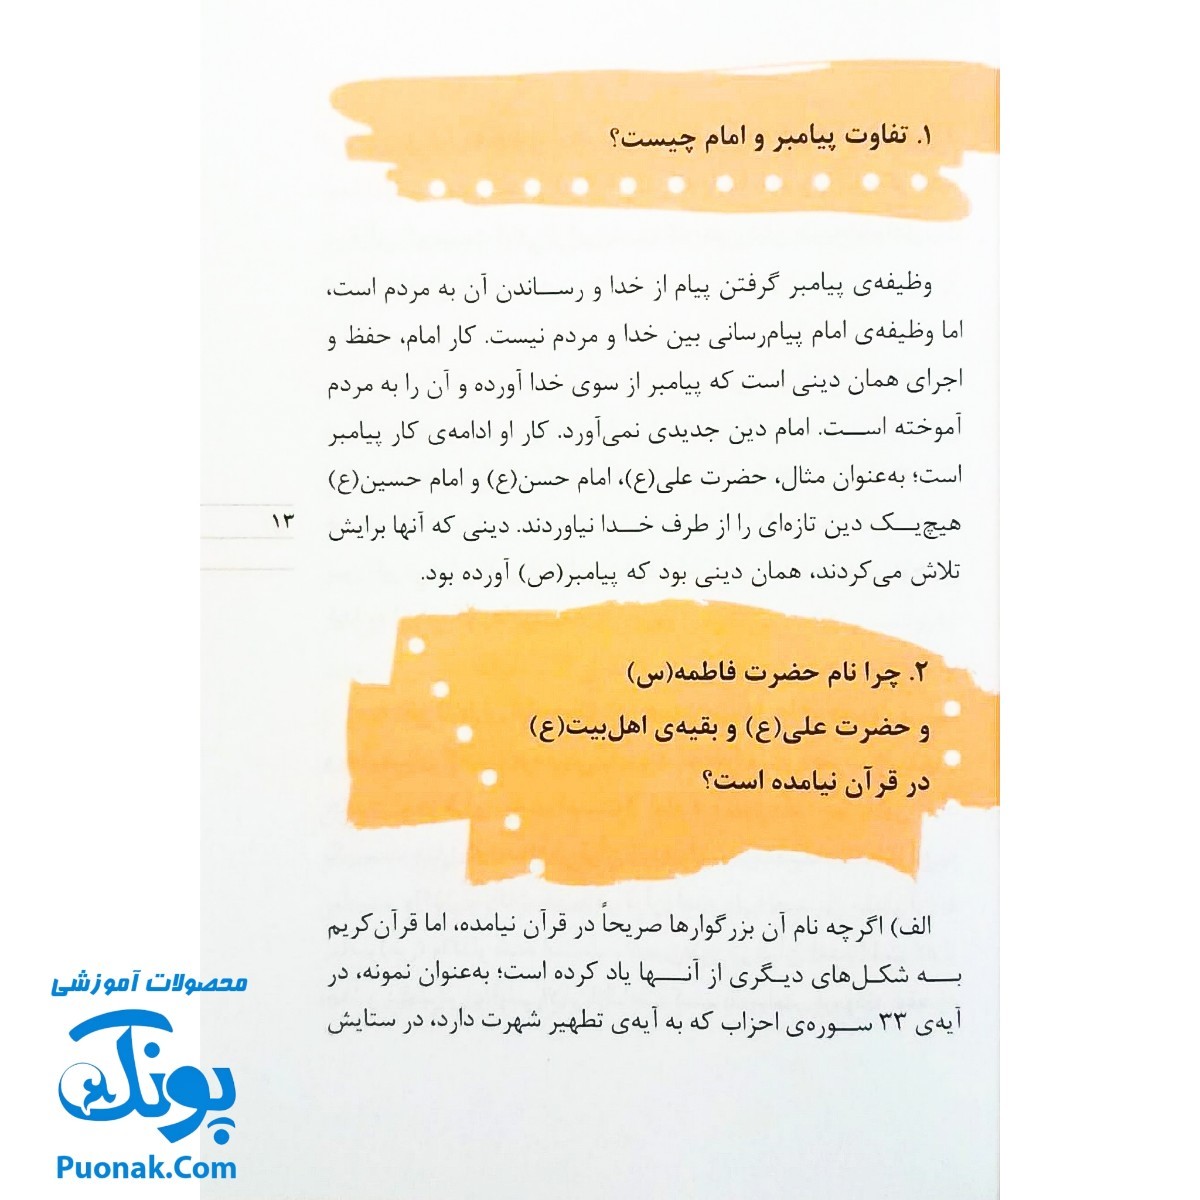 ۱. تفاوت پیامبر و امام چیست؟
وظیفه‌ی پیامبر گرفتن پیام از خدا و رســاندن آن به مردم است،
اما وظیفه‌ی امام پیام‌رسانی بین خدا و مردم نیست. کار امام، حفظ و
اجرای همان دینی است که پیامبر از سوی خدا آورده و آن را به مردم
آموخته اســت. امام دین جدیدی نمی‌آورد. کار او ادامه‌ی کار پیامبر
است؛ به‌عنوان مثال، حضرت علی(ع)، امام حسن(ع) و امام حسین(ع)
هیچ‌یــک دین تازه‌ای را از طرف خــدا نیاوردند. دینی که آنها برایش
تلاش می‌کردند، همان دینی بود که پیامبر(ص) آورده بود.
۱۳
۲. چرا نام حضرت فاطمه(س)
و حضرت علی(ع) و بقیه‌ی اهل‌بیت(ع)
در قرآن نیامده است؟
الف) اگرچه نام آن بزرگوارها صریحاً در قرآن نیامده، اما قرآن‌کریم
بــه شکل‌های دیگری از آنــها یاد کرده است؛ به‌عنوان نمونه، در
آیه‌ی ۳۳ ســوره‌ی احزاب که به آیه‌ی تطهیر شهرت دارد، در ستایش
محصولات آموزشی
پونک
Puonak.Com